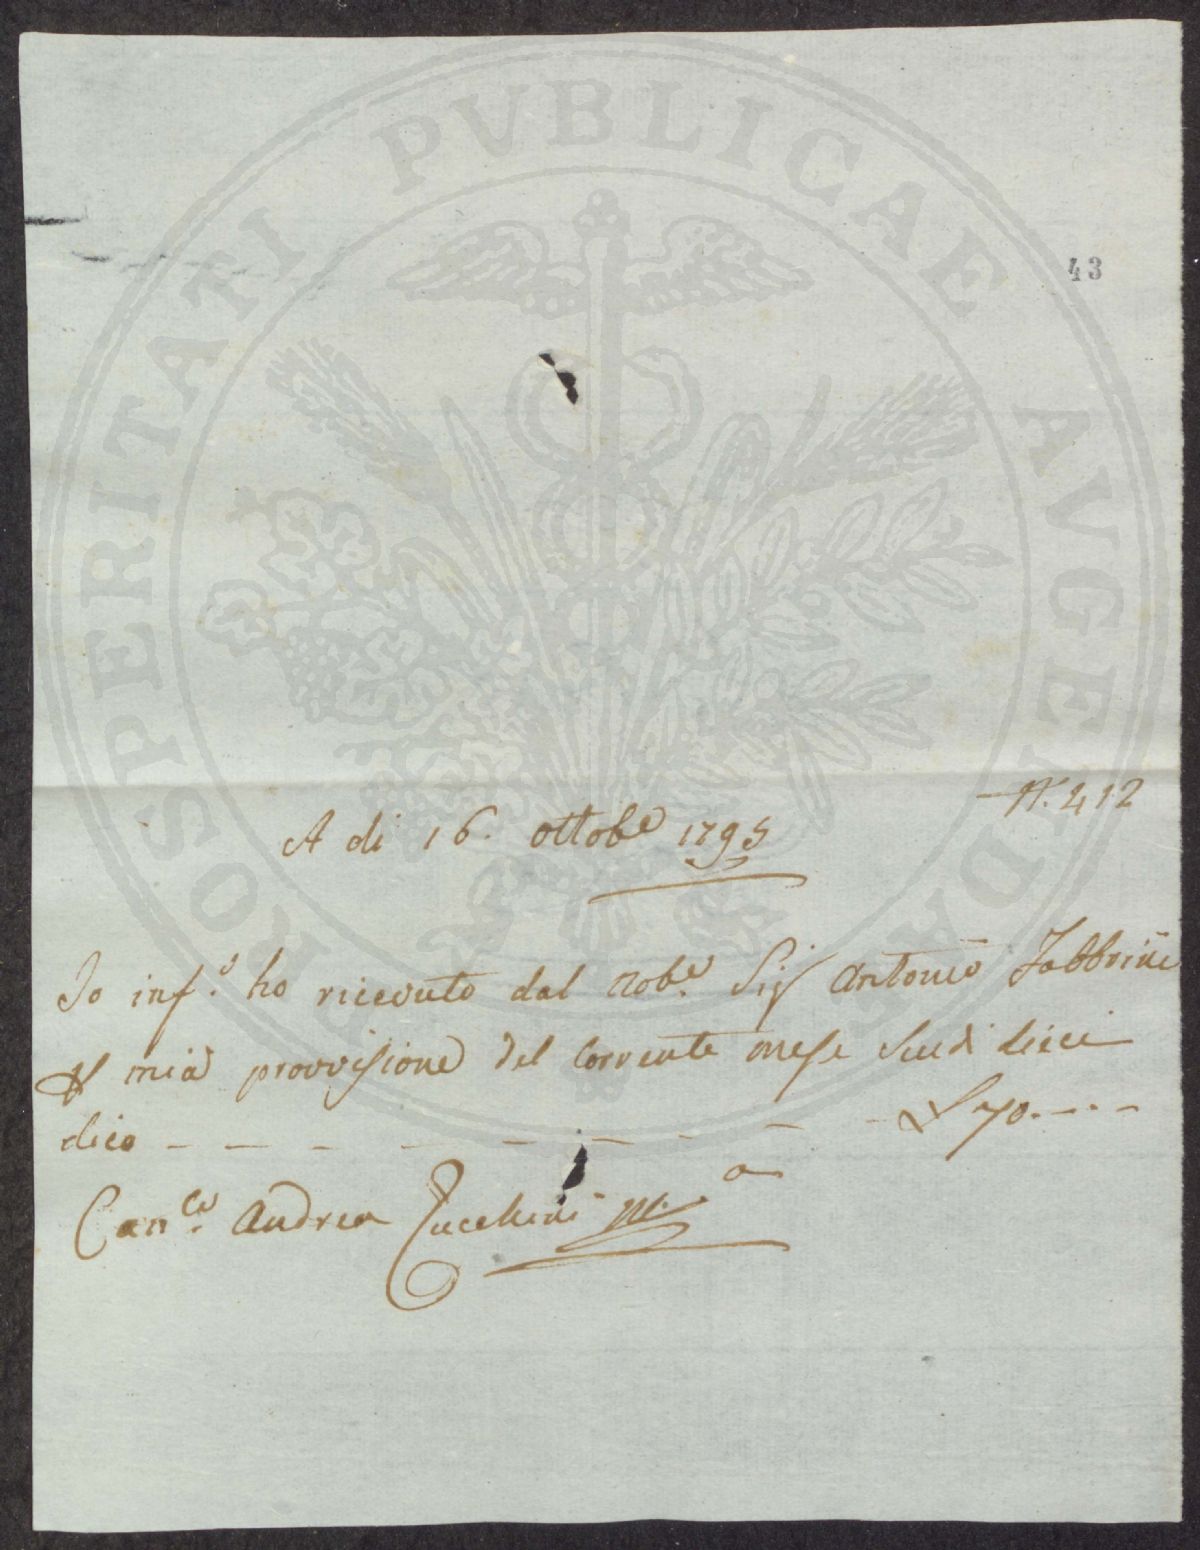 PROSPERITATI PUBLICAE AVGENDAE
43
N. 412
A di 16. ottobe 1795
Io inf.o ho ricevuto dal Nobe. Sig Antonio Fabbrini
p mia provvisione del corrente mese Scudi dieci
dico — — — — — — — — £ 70. — . —
Can.ce Andrea Zucchini